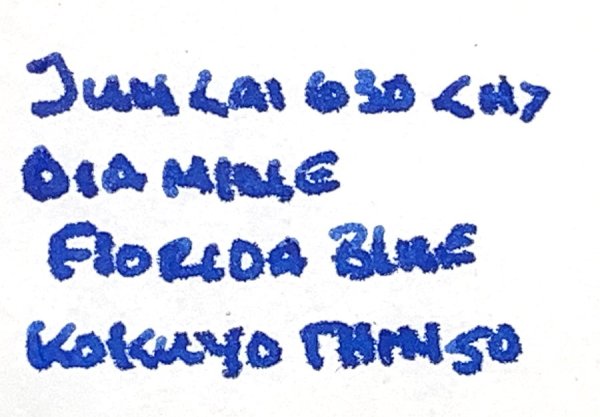 JUNLAI 630 <M>
DIAMINE
FLORIDA BLUE
KOKUYO THIN 50